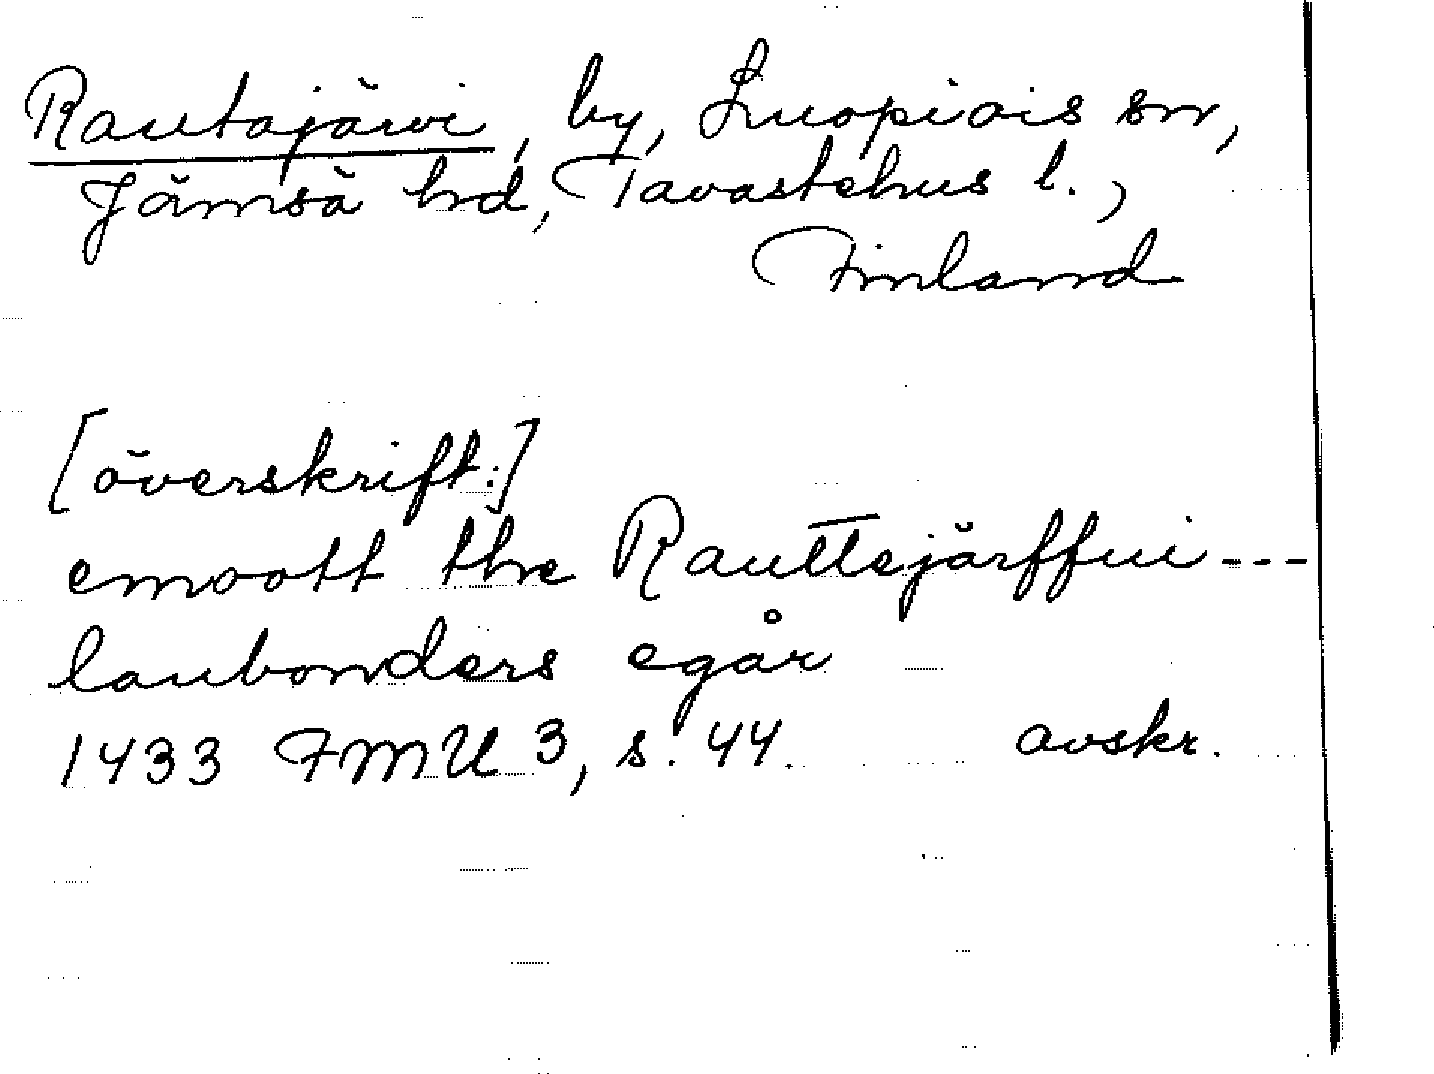 Rautajärvi, by, Luopiois sn,
Jämsä hd, Tavastehus l.,
Finland
[överskrift:]
emoott thre Rauttejärffui ---
lanbonders egår
1433 FMU 3, s. 44. avskr.